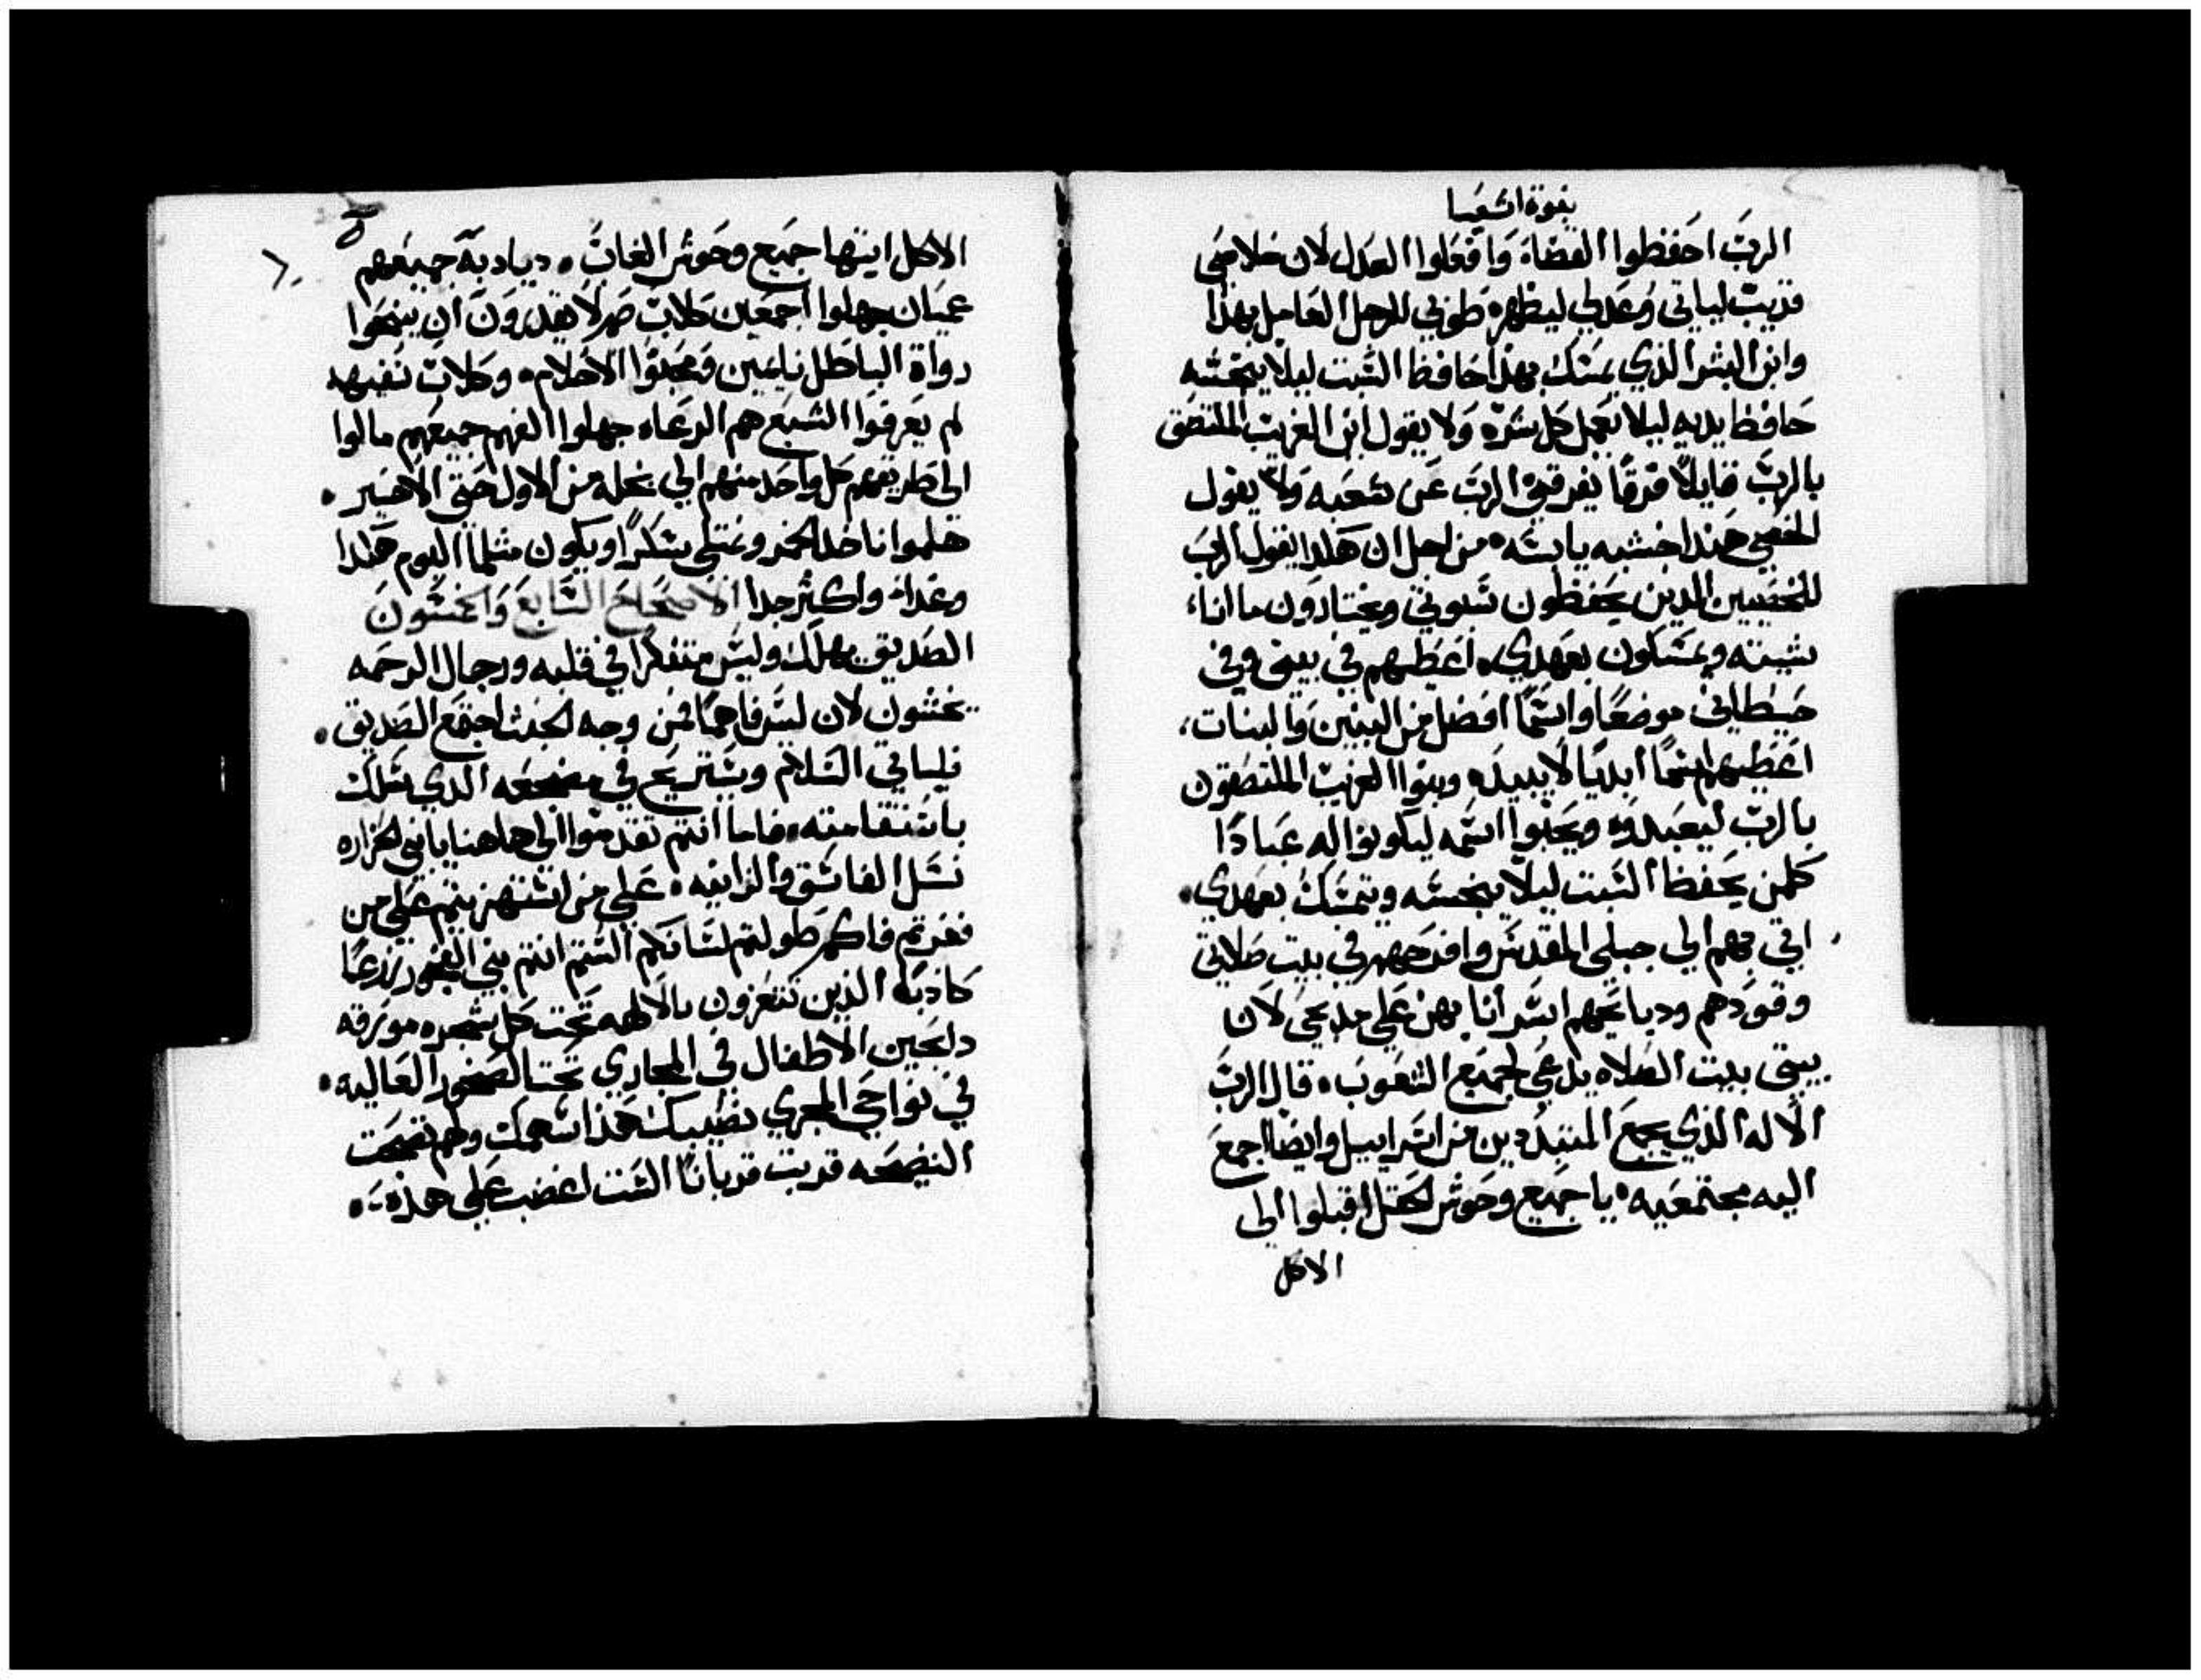 نبوة اشعيا
الرب احفظوا القضاة وافعلوا العدل لان خلاصي
قريب لياتي وعدلي ليظهر طوبي للرجل العامل بهذا
وابن البشر الذي يمسك بهذا حافظ السبت ليلا ينجسه
حافظ يديه ليلا يعمل كل شره ولا يقول ابن الغريب الملتصق
بالرب قايلا فرقا يفرقني الرب عن شعبه ولا يقول
الخصي هندا خشبه يابسه من اجل ان هكدا يقول الرب
للخصيين الدين يحفظون سبوتي ويختارون ما انا
شيته ويمسكون بعهدي اعطيهم في بيتي وفي
حيطاني موضعا واسما افضل من البنين والبنات
اعطيهم اسما ابديا لا يبيد وبنوا الغريب الملتصقون
بالرب ليعبدوه ويحبوا اسمه ليكونوا له عبادا
كلمن يحفظ السبت ليلا ينجسه ويتمسك بعهدي
اتي بهم الي جبلي المقدس وافرحهم في بيت صلاتي
وقودهم ودبايحهم اسر انا بهن علي مدبحي لان
بيتي بيت الصلاه يدعي لجميع الشعوب قال الرب
الاله الذي يجمع المتبددين من اسراييل وايضا اجمع
اليه مجتمعيه يا جميع وحوش الحقل اقبلوا الي
الاكل
الاكل ايتها جميع وحوش الغاب ديادبة جميعهم
عميان جهلوا اجمعين كلاب صم لا يقدرون ان ينبحوا
رواة الباطل نايمين ومحبوا الاحلام وكلاب نفيهم
لم يعرفوا الشبع هم الرعاه جهلوا الفهم جميعهم مالوا
الى طريقهم كل واحد منهم الي بخله من الاول حتي الاخير
هلموا ناخد الخمر ونمتلي سكرا ويكون مثلما اليوم هكدا
وغدا واكثر جدا الاصحاح السابع والخمسون
الصديق يهلك وليس متفكرا في قلبه ورجال الرحمه
يختنون لان ليس فاحما فمن وجه الخبث اجتمع الصديق
فلياتي السلام ويستريح في مضجعه الذي سلك
باستقامته فاما انتم تقدموا الي هاهنا يا بني الحزاره
نسل الفاسق والزانيه علي من استهزيتم علي من
فغرتم فاكم طولتم لسانكم الستم انتم بني الفجور زرعا
كادبه الذين تتعزون بالالهه تحت كل شجره مورقه
دابحين الاطفال في المجاري تحت الصخور العاليه
في نواحي المجري نصيبك هذا سهمك ولهم نضحت
النضيحه قربت قربانا الست اغضب علي هذه